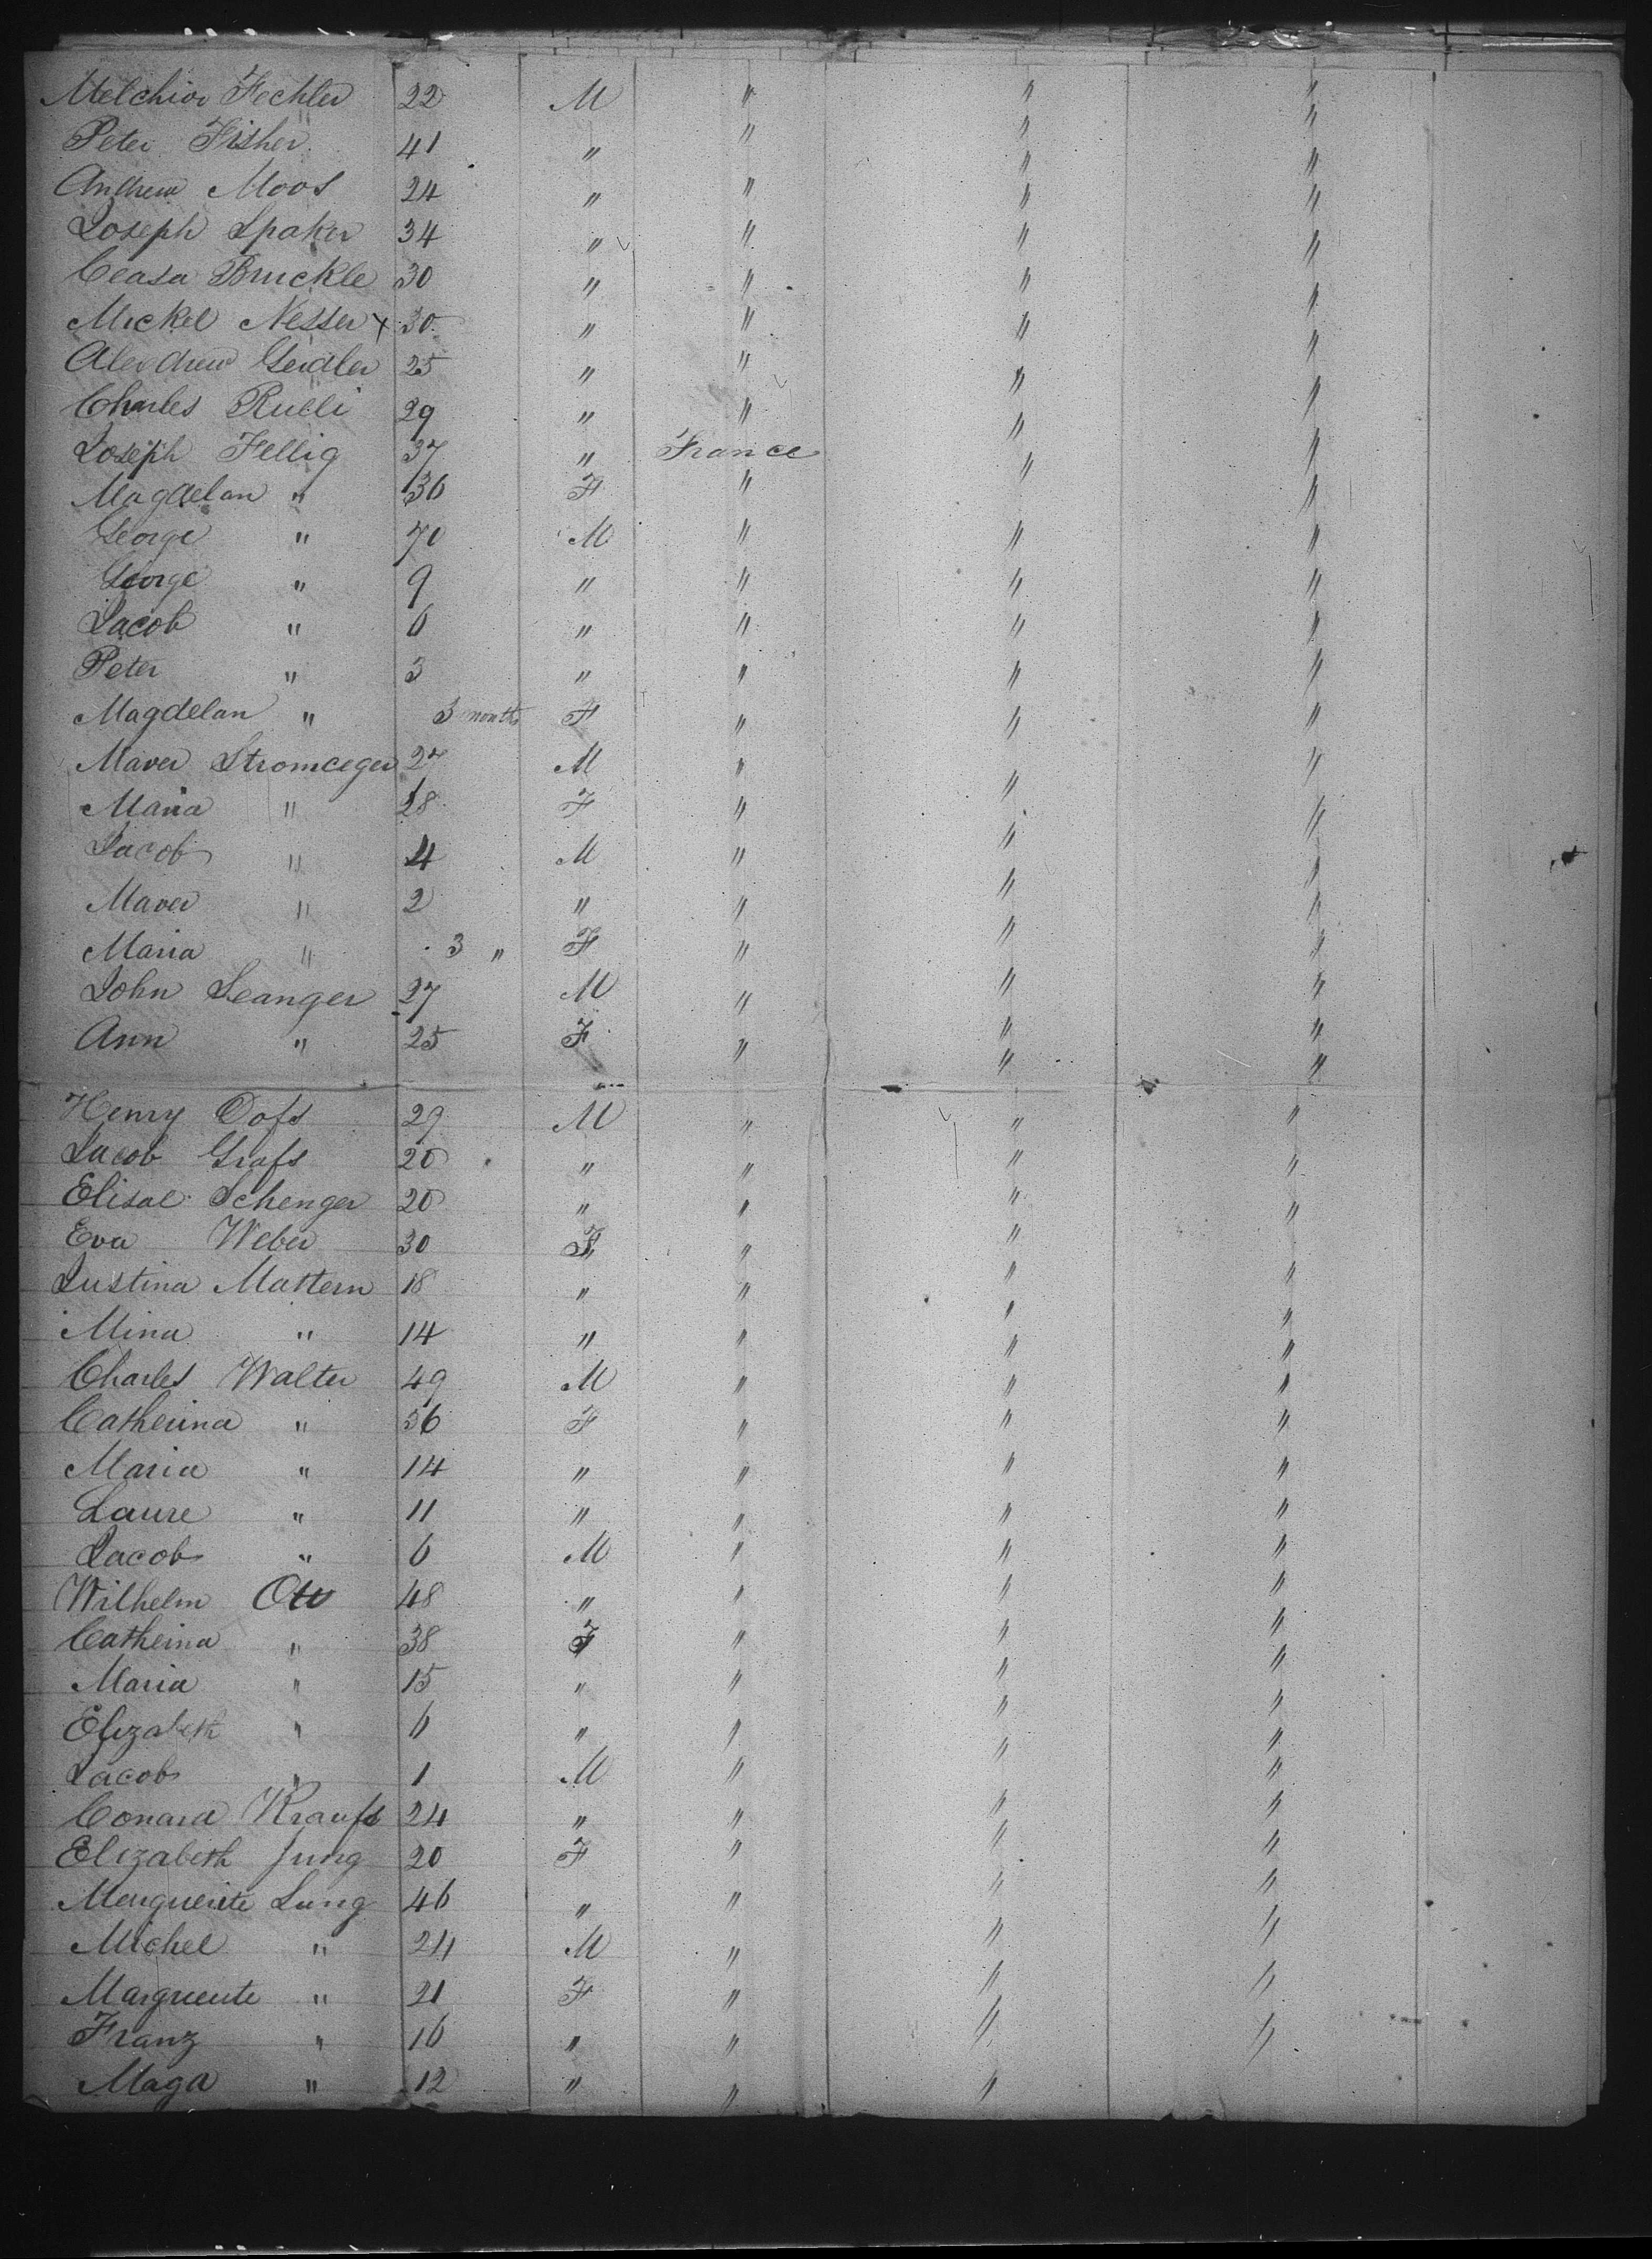 Melchior Fechler 22 M " " "
Peter Fisher 41 " " " "
Andrew Moos 24 " " " "
Joseph Spaker 34 " " " "
Ceasa Bruckle 30 " " " "
Mickel Nesser x 30 " " " "
Alexdrew Geidler 25 " " " "
Charles Rulli 29 " " " "
Joseph Fellig 37 " France " "
Magdelan " 36 F " "
George " 70 M " " "
George " 9 " " " "
Jacob " 6 " " " "
Peter " 3 " " " "
Magdelan " 3 months F " " "
Maver Stromceger 27 M " " "
Maria " 28 F " " "
Jacob " 4 M " " "
Maver " 2 " " " "
Maria " 3 " F " " "
John Seanger 27 M " " "
Ann " 25 F " " "
Henry Dofs 29 M " " "
Jacob Grafs 20 " " " "
Elisae Schenger 20 " " " "
Eva Weber 30 F " " "
Justina Mattern 18 " " " "
Mina " 14 " " " "
Charles Walter 49 M " " "
Catherina " 36 F " " "
Maria " 14 " " " "
Laure " 11 " " " "
Jacob " 6 M " " "
Wilhelm Ott 48 " " " "
Catheina " 38 F " " "
Maria " 15 " " " "
Elizabeth " 6 " " " "
Jacob " 1 M " " "
Conard Kraufs 24 " " " "
Elizabeth Jung 20 F " " "
Merguerite Lung 46 " " " "
Michel " 24 M " " "
Marguerite " 21 F " " "
Franz " 16 " " " "
Maga " 12 " " "